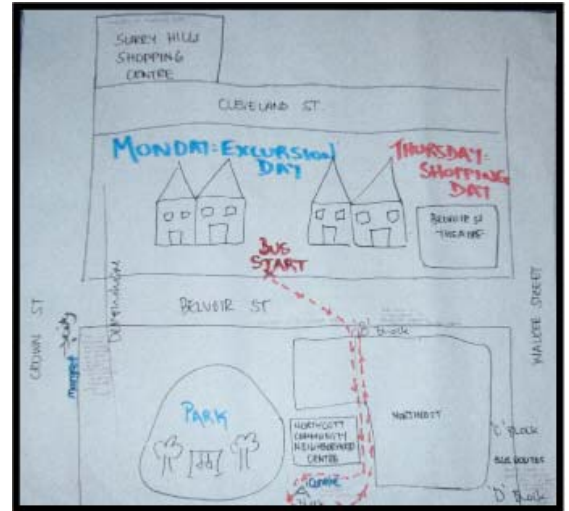 SURRY HILLS
SHOPPING
CENTRE
CLEVELAND ST.
MONDAY: EXCURSION
DAY
THURSDAY:
SHOPPING
DAY
BELVOIR ST
THEATRE
BUS
START
BELVOIR ST
CROWN ST
WALKER STREET
PARK
NORTHCOTT
COMMUNITY
NEIGHBORHOOD
CENTRE
NORTHCOTT
'B' Block
'C' Block
BUS ROUTES
'D' Block